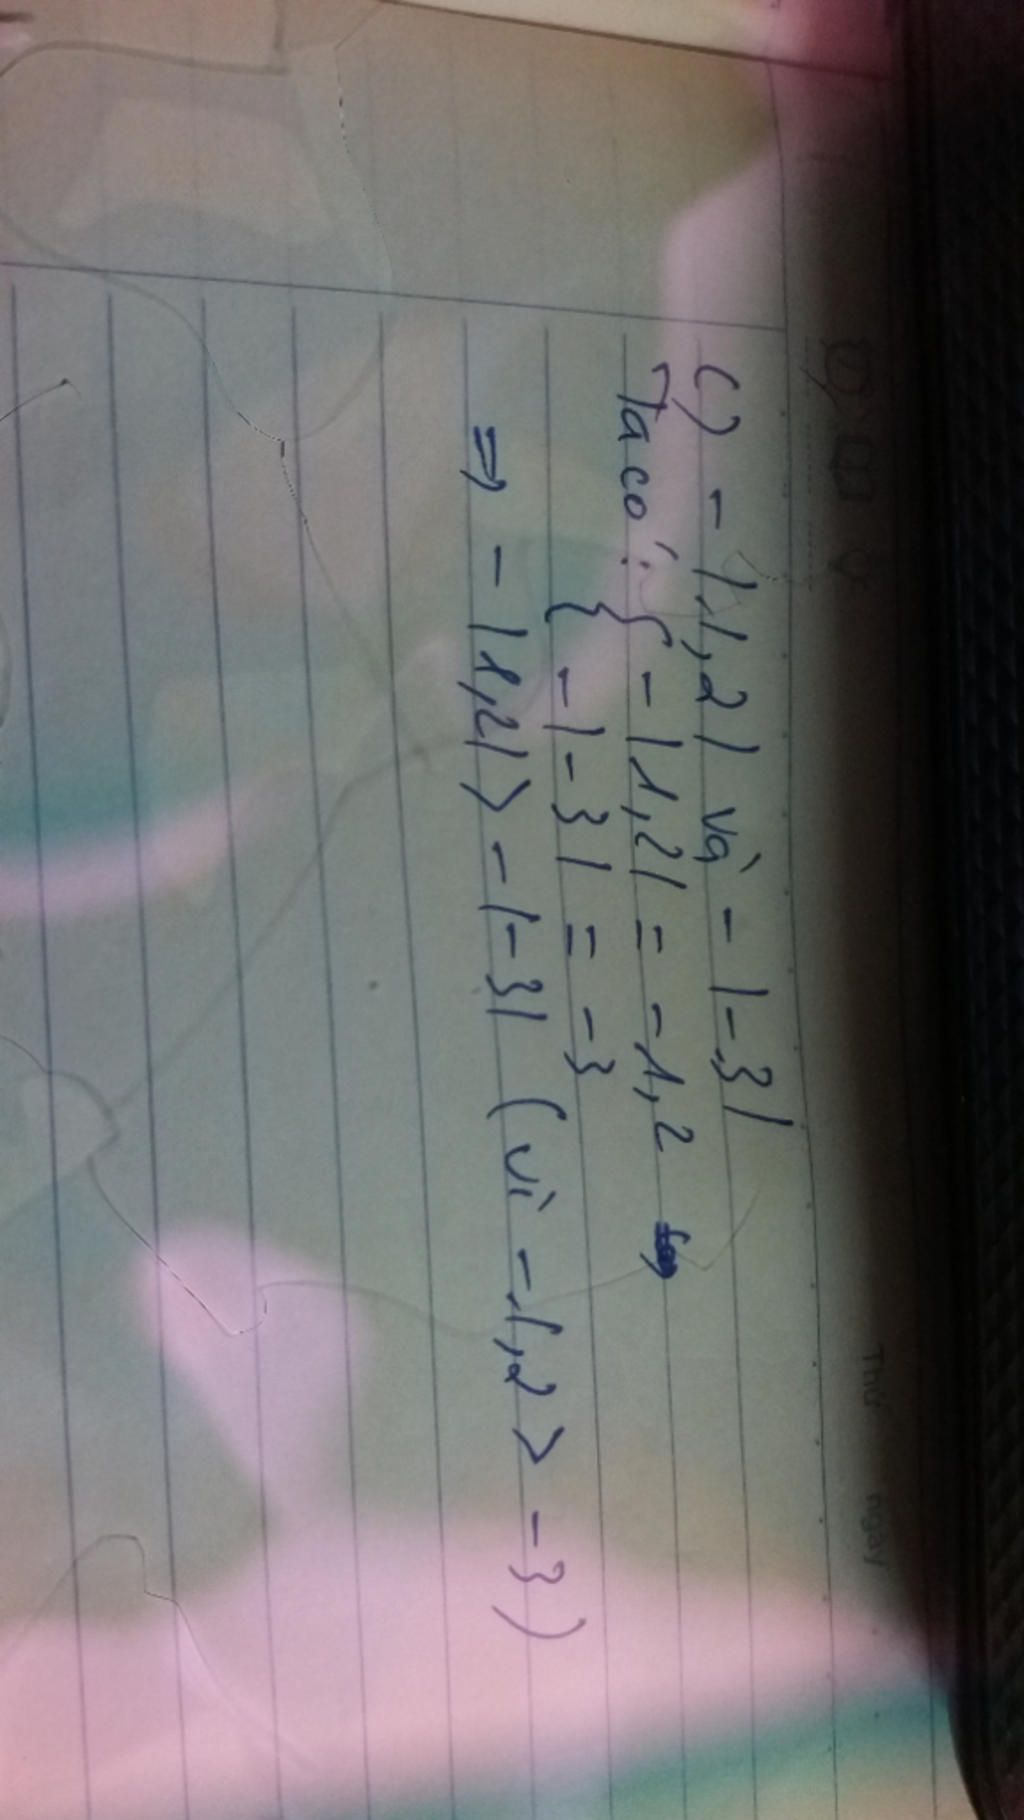 c) - |1,2| và - |-3|
Ta có: { - |1,2| = -1,2
{ - |-3| = -3
⇒ - |1,2| > - |-3| (vì -1,2 > -3)
Thứ ngày